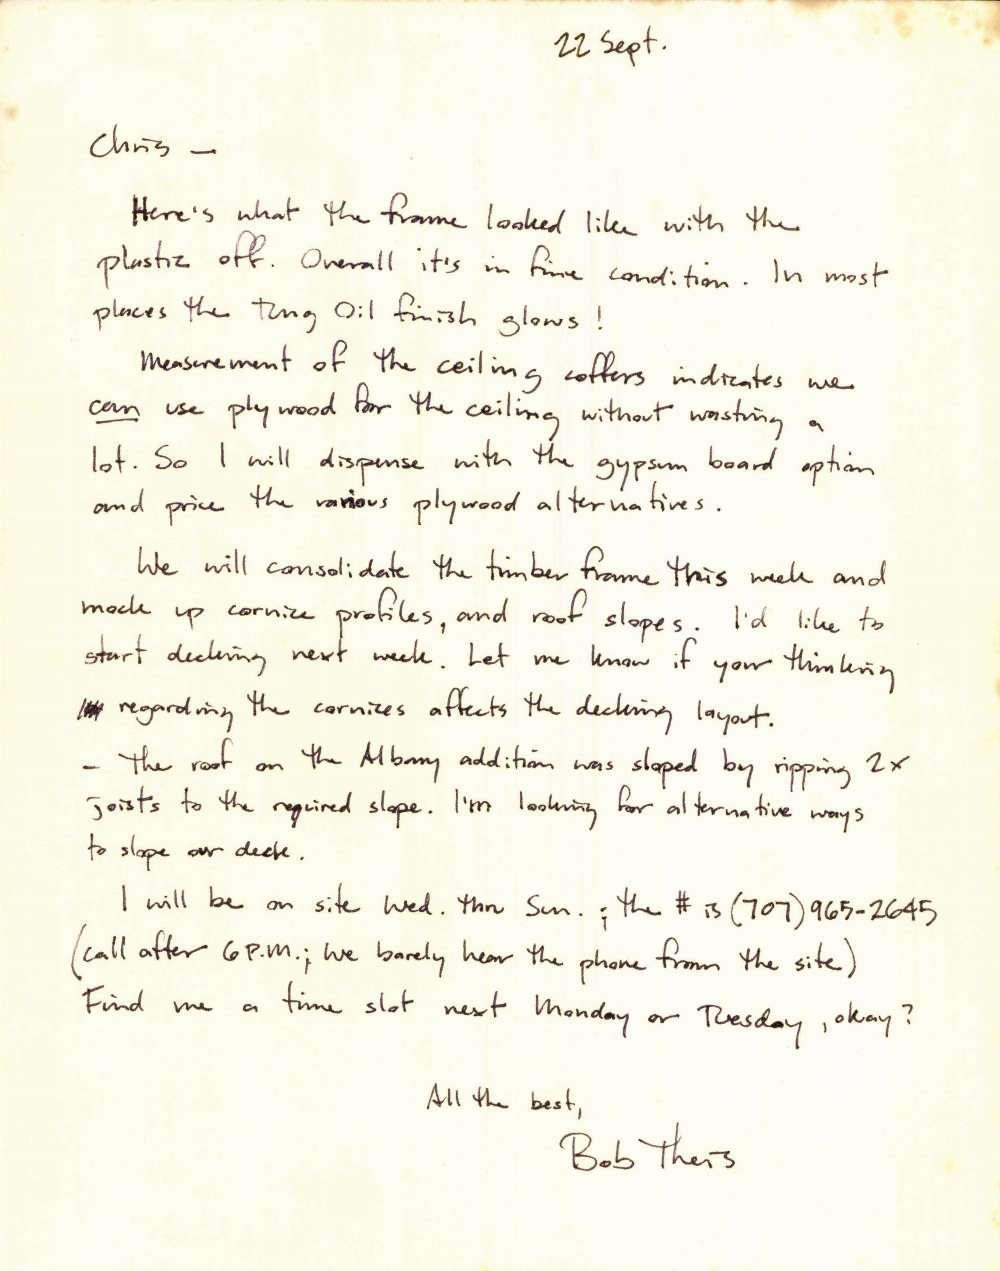 22 Sept.
Chris —
Here's what the frame looked like with the
plastic off. Overall it's in fine condition. In most
places the Tung Oil finish glows!
Measurement of the ceiling coffers indicates we
can use plywood for the ceiling without wasting a
lot. So I will dispense with the gypsum board option
and price the various plywood alternatives.
We will consolidate the timber frame this week and
mock up cornice profiles, and roof slopes. I'd like to
start decking next week. Let me know if your thinking
regarding the cornices affects the decking layout.
- The roof on the Albany addition was sloped by ripping 2x
joists to the required slope. I'm looking for alternative ways
to slope our deck.
I will be on site Wed. thru Sun.; the # is (707) 965-2645
(call after 6 P.M.; we barely hear the phone from the site)
Find me a time slot next Monday or Tuesday, okay?
All the best,
Bob Theis